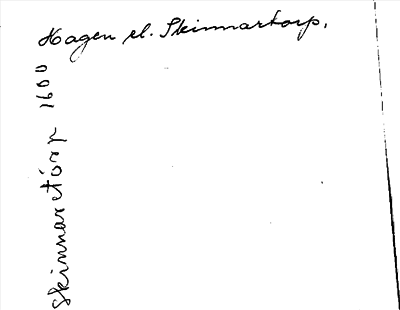 Hagen el. Skinnartorp.
Skinnaretorp 1600